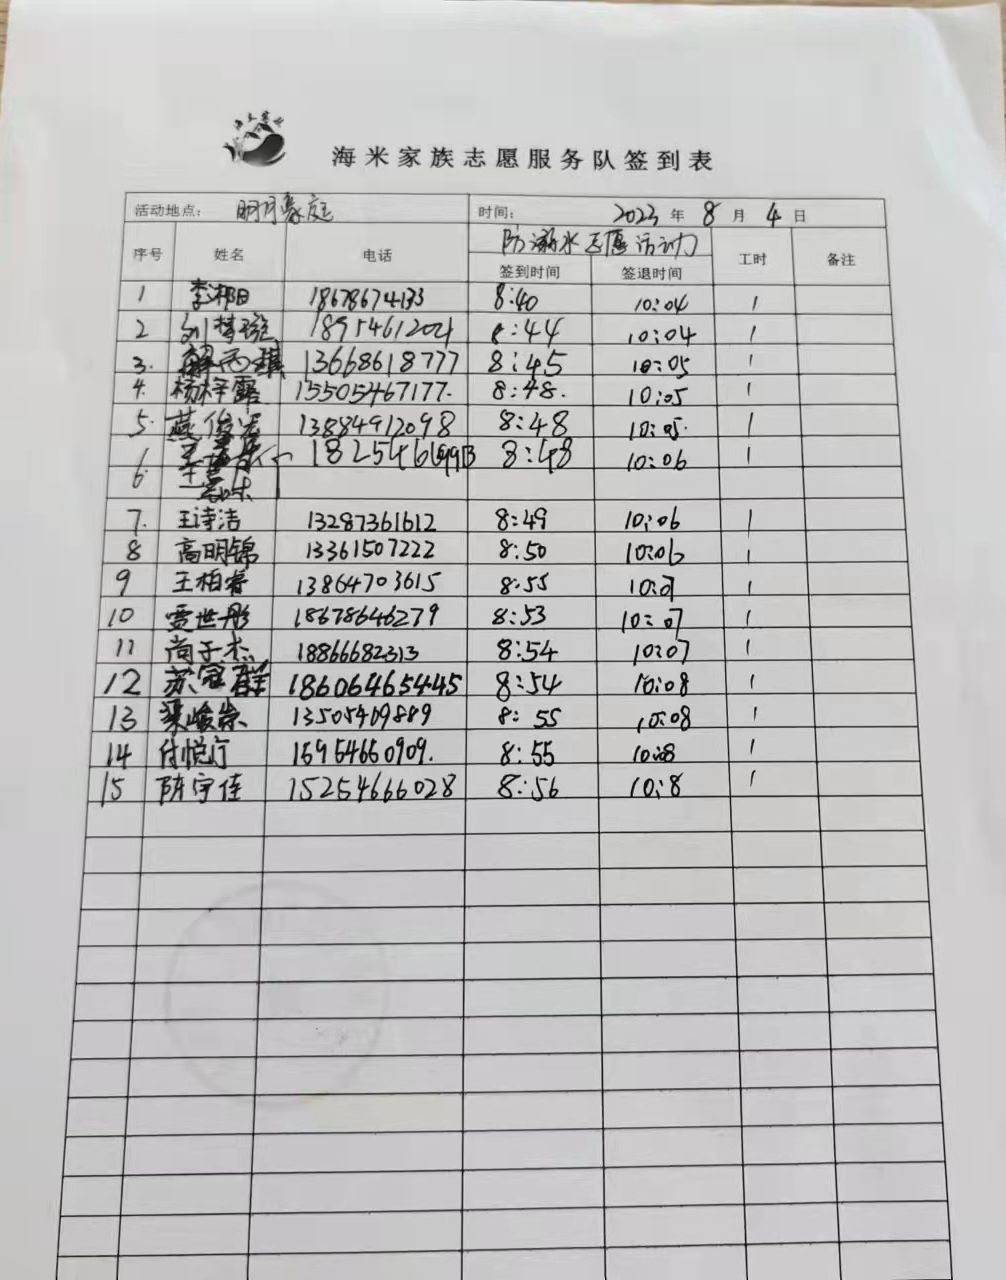 海米家族志愿服务队签到表
活动地点： 明月豪庭 时间： 2023 年 8 月 4 日
序号 姓名 电话 防溺水志愿活动 工时 备注
签到时间 签退时间
1 李邴阳 18678674133 8:40 10:04 1
2 刘梦璇 18954612021 8:44 10:04 1
3. 解丙琪 13668618777 8:45 10:05 1
4. 杨梓露 15505467177. 8:48. 10:05 1
5. 燕俊宏 13884912098 8:48 10:05. 1
6 8:48 10:06 1
7. 王诗洁 13287361612 8:49 10:06 1
8 高明锦 13361507222 8:50 10:06 1
9 王柏睿 13864703615 8:55 10:07 1
10 贾世彤 18678646279 8:53 10:07 1
11 尚子杰 18866682313 8:54 10:07 1
12 苏冠群 18606465445 8:54 10:08 1
13 梁峻崇 13505469889 8:55 10:08 1
14 付悦汀 15954660909. 8:55 10:8 1
15 陈宇佳 15254666028 8:56 10:8 1